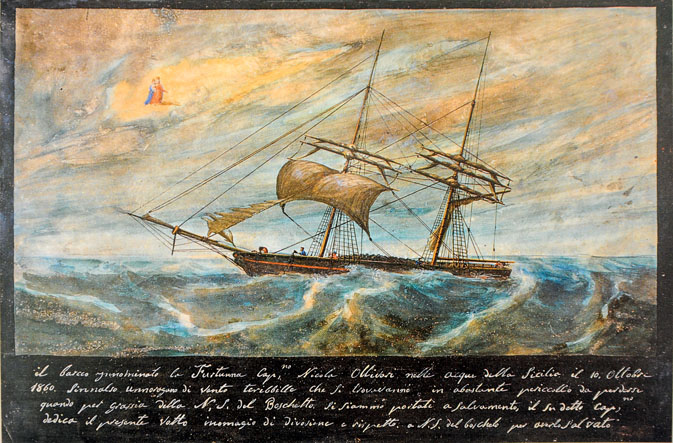 il basco innominato la Tustanna Cap,no Nicola Ollivari nelle acque della Sicilia il 10. Ottobre
1860. di vento teribbile che si trovavanno in abastante pericollo da perdersi
quando per Grassia della N. S. del Boschetto. Si siammo portati a salvamento, il su detto Cap,no
dedica il presente Votto inomagio di divosione e rispetto. a N.S. del boscheto per averlo salvato